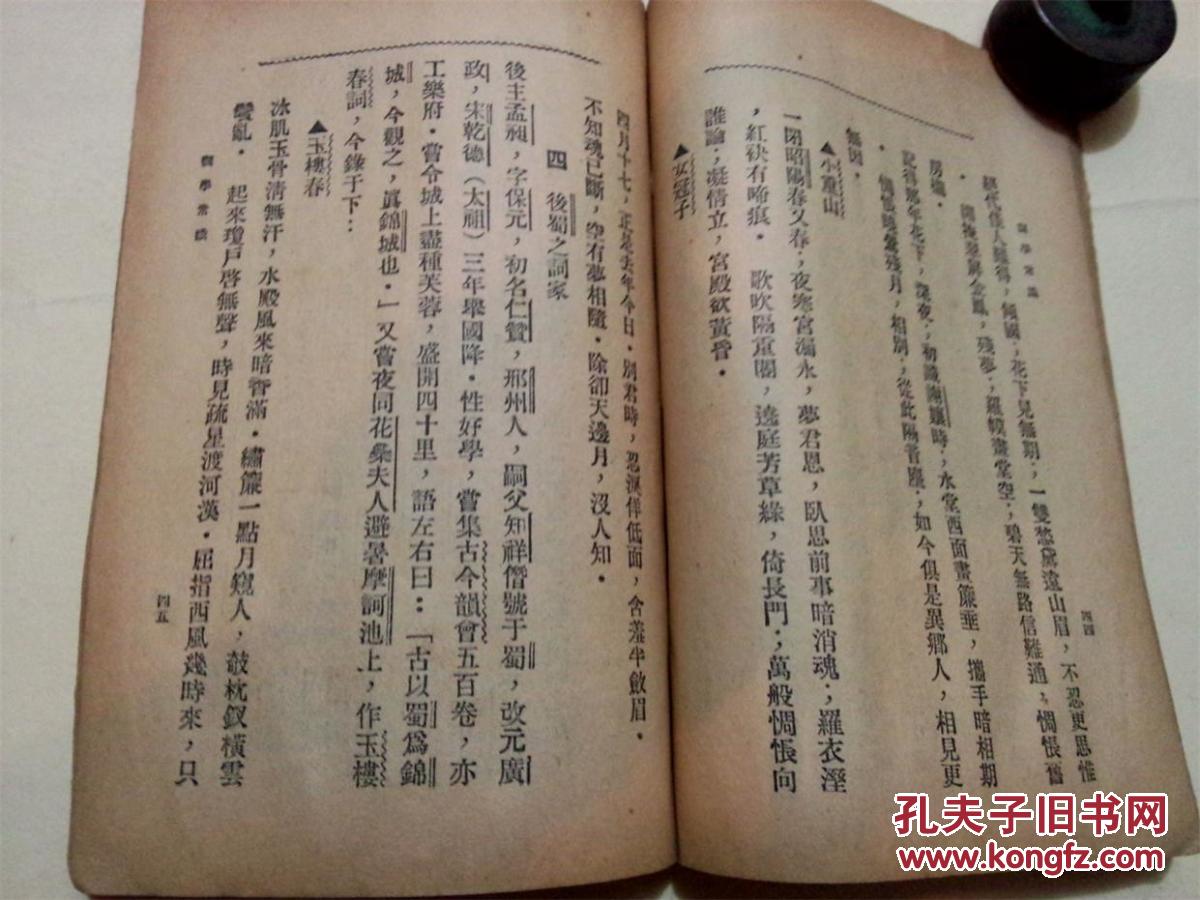 詞學常識
四四
絕代佳人難得，傾國，花下見無期，一雙愁黛遠山眉，不忍更思惟
。　閒掩翠屏金鳳，殘夢，羅幕畫堂空，碧天無路信難通，惆悵舊
房櫳。
記得那年花下，深夜，初識謝孃時，水堂西面畫簾垂，攜手暗相期
。　惆悵曉鶯殘月，相別，從此隔音塵，如今俱是異鄉人，相見更
無因。
▲小重山
一閉昭陽春又春，夜寒宮漏永，夢君恩，臥思前事暗消魂，羅衣溼
，紅袂有啼痕．　歌吹隔重閽，遶庭芳草綠，倚長門；萬般惆悵向
誰論；凝情立，宮殿欲黃昏．
▲女冠子
四月十七，正是去年今日．別君時，忍淚佯低面，含羞半斂眉．
不知魂已斷，空有夢相隨．除卻天邊月，沒人知．
四　後蜀之詞家
後主孟昶，字保元，初名仁贊，邢州人，嗣父知祥僭號于蜀，改元廣
政，宋乾德（太祖）三年舉國降．性好學，嘗集古今韻會五百卷，亦
工樂府．嘗令城上盡種芙蓉，盛開四十里，語左右曰：「古以蜀爲錦
城，今觀之，眞錦城也．」又嘗夜同花蕊夫人避暑摩訶池上，作玉樓
春詞，今錄于下：
▲玉樓春
冰肌玉骨淸無汗，水殿風來暗香滿．繡簾一點月窺人，攲枕釵橫雲
鬢亂．　起來瓊戶啓無聲，時見疏星渡河漢．屈指西風幾時來，只
詞學常識
四五
孔夫子旧书网
www.kongfz.com